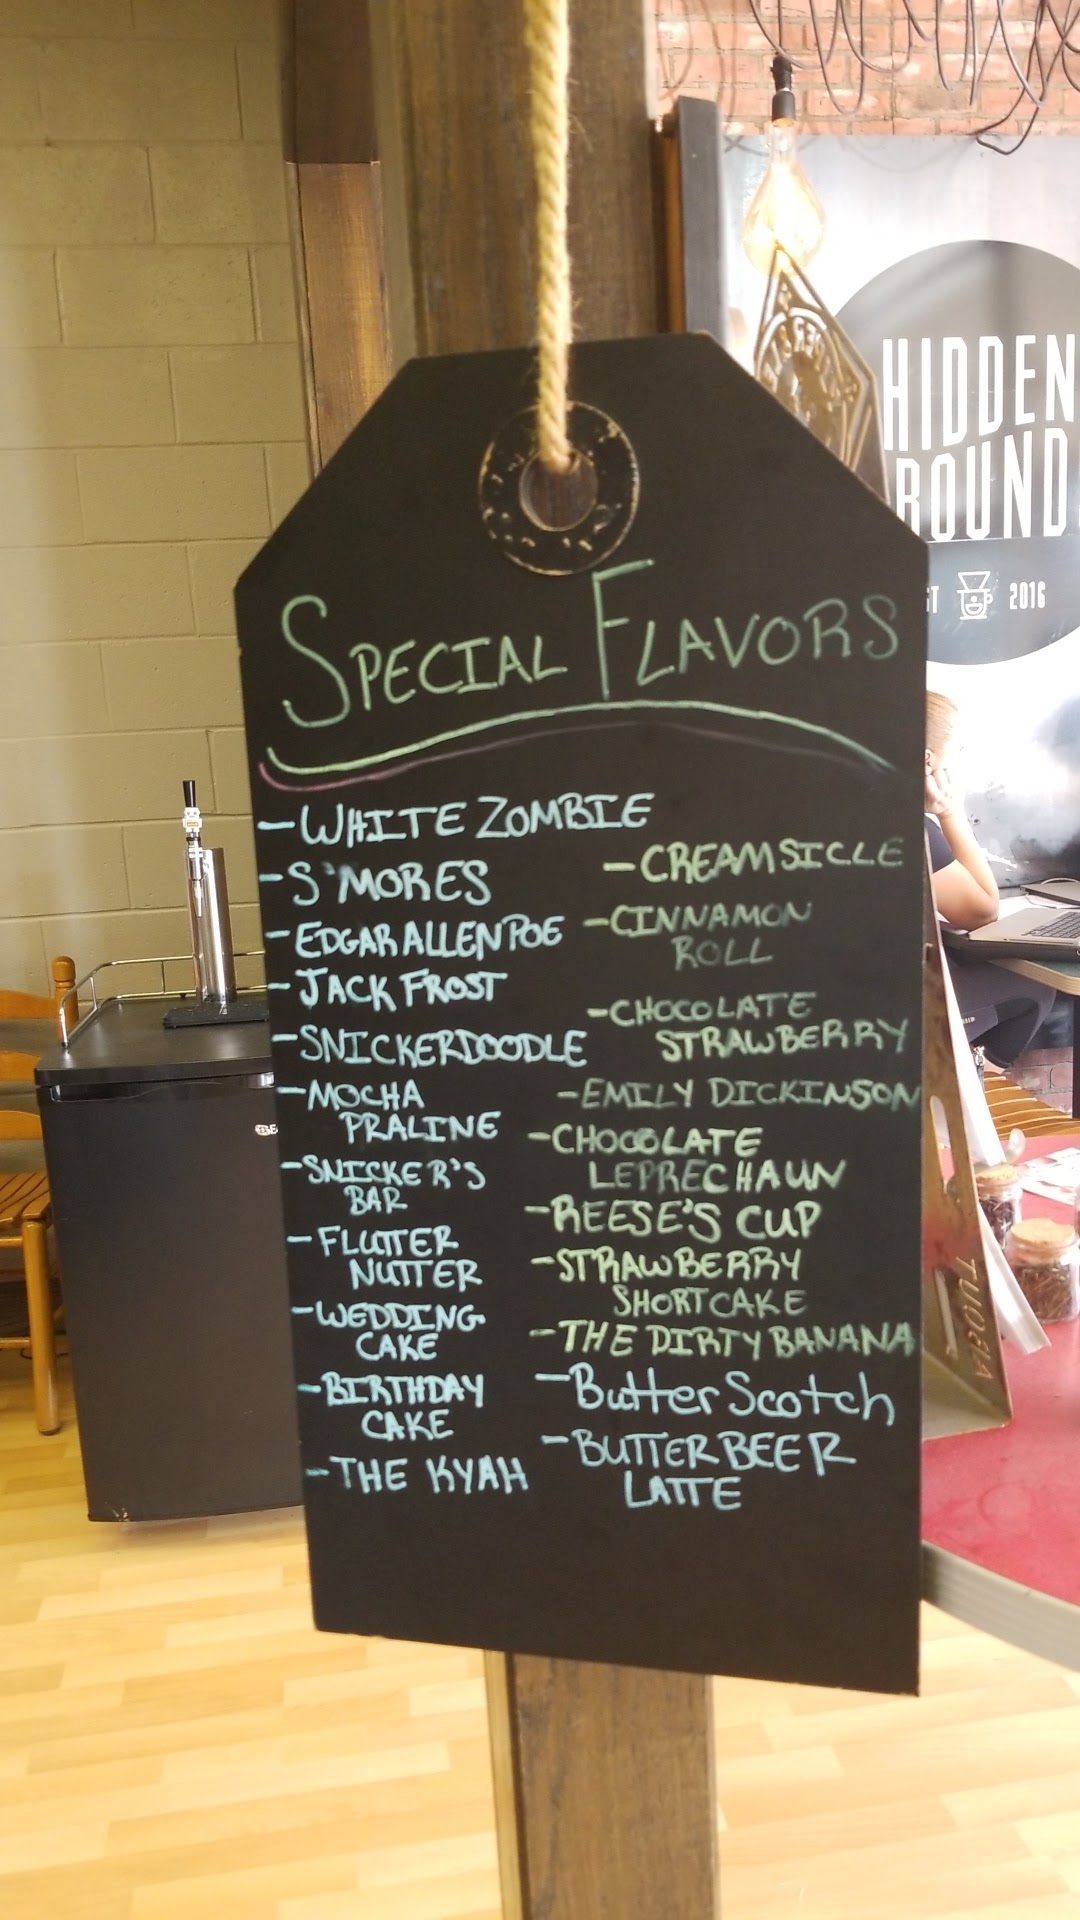 SPECIAL FLAVORS
- WHITE ZOMBIE
- S'MORES
- EDGAR ALLEN POE
- JACK FROST
- SNICKERDOODLE
- MOCHA
PRALINE
- SNICKER'S
BAR
- FLUTTER
NUTTER
- WEDDING
CAKE
- BIRTHDAY
CAKE
- THE KYAH
- CREAMSICLE
- CINNAMON
ROLL
- CHOCOLATE
STRAWBERRY
- EMILY DICKINSON
- CHOCOLATE
LEPRECHAUN
- REESE'S CUP
- STRAWBERRY
SHORTCAKE
- THE DIRTY BANANA
- ButterScotch
- BUTTERBEER
LATTE
HIDDEN
ROUND
ST 2016